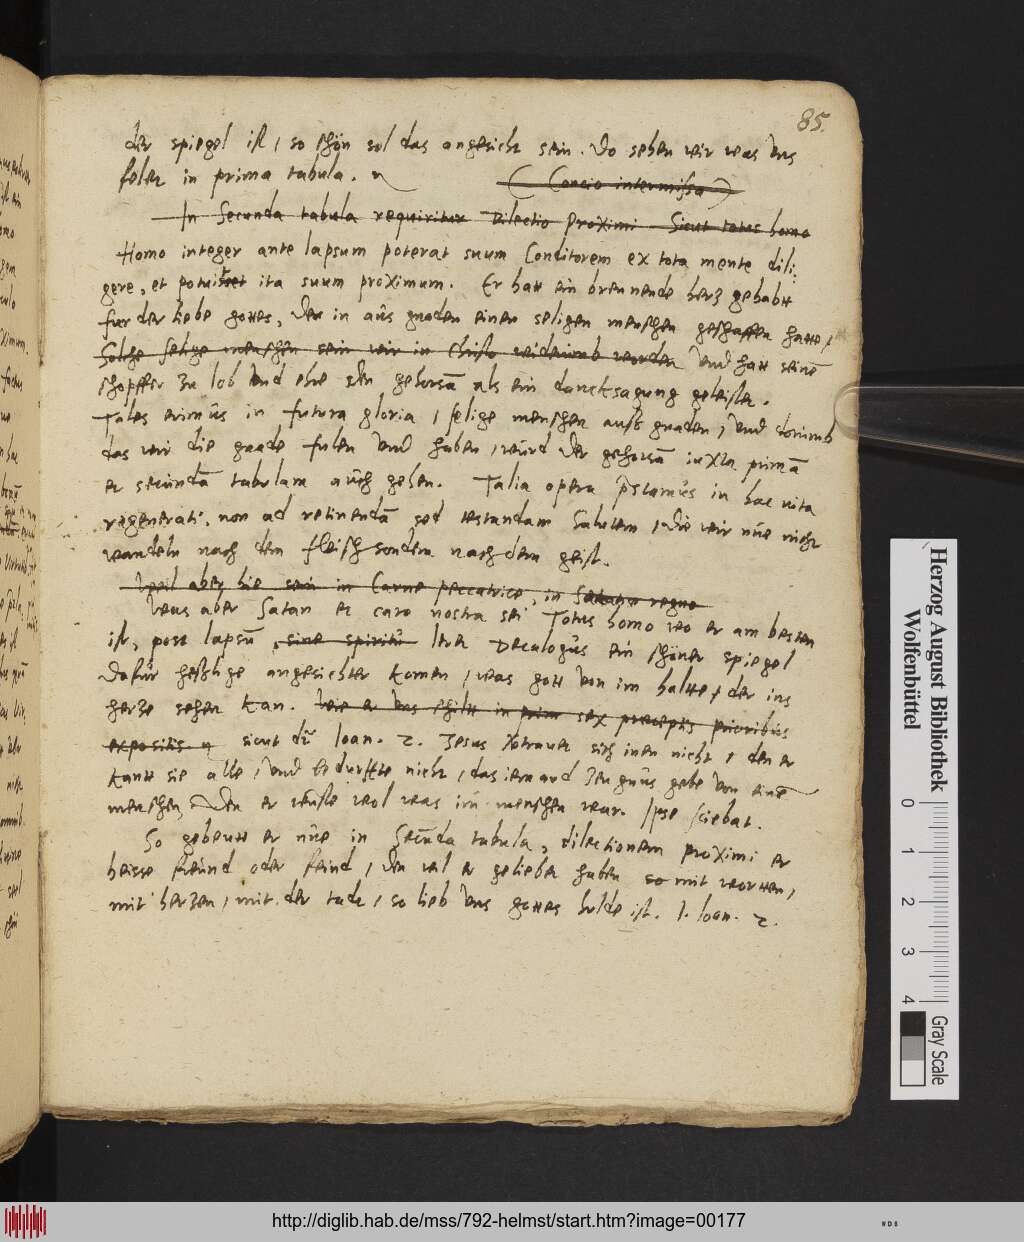 85.
der spiegel ist, so schön sol das angesicht sein. Do sehen wir was uns
felet in prima tabula.
( Concio intermissa )
In Secunda tabula requiritur Dilectio Proximi. Sicut totus homo
Homo integer ante lapsum poterat suum Conditorem ex tota mente dili:
gere, et potuisset ita suum proximum. Er hatt ein brennende herz gehabtt
fur der liebe gottes, Der in aus gnaden einen seligen menschen geschaffen hatte,
Solche selige menschen sein wir in Christo widerumb worden Und hatt seinē
schopffer zu lob und ehre den gehorsā als ein dancksagung geleistet.
Tales erimus in futura gloria, selige menschen auss gnaden, und dorumb
das wir die gnade fulen und haben, würd der gehorsā iuxta primā
et secundā tabulam auch gehen. Talia opera praestamus in hac vita
regenerati, non ad retinendā sed testandam Salutem, die wir nue nicht
wandeln nach dem fleisch sondern nach dem geist.
Weil aber hie sein in Carne peccatrice, in Satanae regno
Was aber Satan et caro nostra sei Totus homo wo er am besten
ist, post lapsū, sine spiritu leret Decalogus ein schöner spiegel
Dafür heslige angesichter komen, was gott von im haltte, der ins
herze sehen kan. Wie er uns schiltt in prim sex praeceptis prioribus
expositis sicut dr̄ Ioan. 2. Jesus vertrauet sich inen nicht, den er
kantt sie alle, und bedurffte nicht, das iemand Zeugnus gebe von einē
menschen, Den er wuste wol was im menschen war. Ipse sciebat.
So gebeutt er nue in Secunda tabula, dilectionem proximi er
heisse freund oder feind, Den wil er geliebet haben so mit worten,
mit herzen, mit der tadt, so lieb uns gottes hulde ist. 1. Ioan. 2.
Herzog August Bibliothek
Wolfenbüttel
0 1 2 3 4
Gray Scale
http://diglib.hab.de/mss/792-helmst/start.htm?image=00177